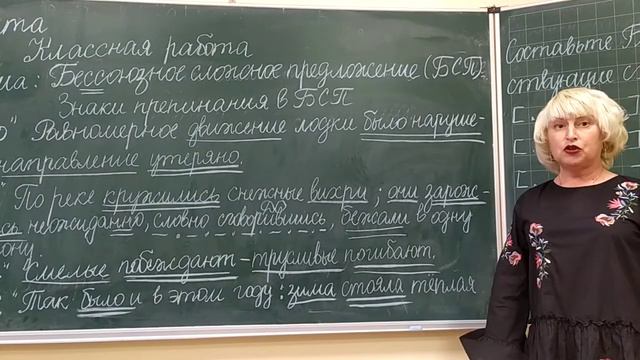 ота
Классная работа
ма: Бессоюзное сложное предложение (БСП).
Знаки препинания в БСП
о" Равномерное движение лодки было наруше-
направление утеряно.
" По реке кружились снежные вихри; они зарож-
сь неожиданно, словно сговорившись, бежали в одну
ону.
" Смелые побеждают - трусливые погибают.
: "Так было и в этом году: зима стояла тёплая
Составьте Б
ствующие с
[
[
[